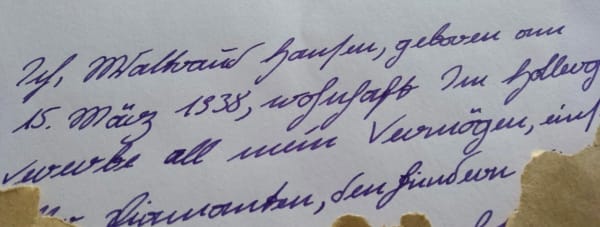 Ich, Waltraud Hansen, geboren am
15. März 1938, wohnhaft Im
vererbe all mein Vermögen,
Diamanten, den Findern